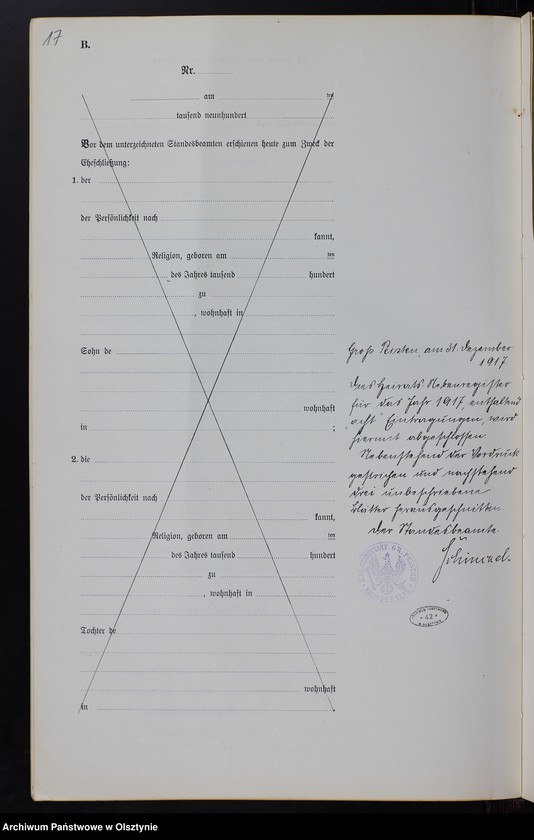 17
B.
Nr.
am ten
tausend neunhundert
Vor dem unterzeichneten Standesbeamten erschienen heute zum Zweck der
Eheschließung:
1. der
der Persönlichkeit nach
kannt,
Religion, geboren am ten
des Jahres tausend hundert
zu
, wohnhaft in
Sohn de
wohnhaft
in ;
2. die
der Persönlichkeit nach
kannt,
Religion, geboren am ten
des Jahres tausend hundert
zu
, wohnhaft in
Tochter de
wohnhaft
in
Groß am 31. Dezember
1917
Das Heirats-Nebenregister
für das Jahr 1917, enthaltend
acht Eintragungen, wird
hiermit abgeschlossen.
Nebenstehend der Vordruck
gestrichen und nachstehend
drei unbeschriebene
Blätter herausgeschnitten.
Der Standesbeamte.
42
Archiwum Państwowe w Olsztynie